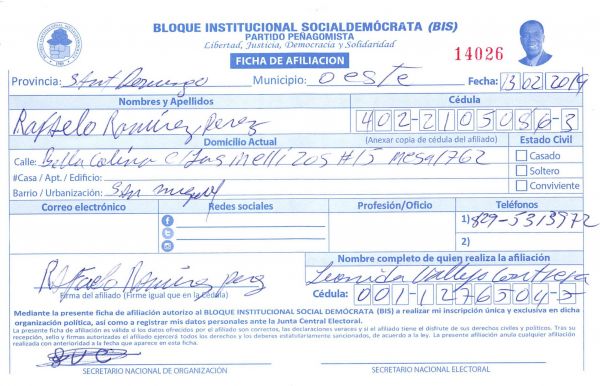 BLOQUE INSTITUCIONAL SOCIALDEMÓCRATA (BIS)
PARTIDO PEÑAGOMISTA
Libertad, Justicia, Democracia y Solidaridad
FICHA DE AFILIACION
14026
Provincia: Sant Domingo Municipio: oeste Fecha: 13 02 2019
Nombres y Apellidos Cédula
Rafaelo Ramirez perez 402-2105086-3
Domicilio Actual (Anexar copia de cédula del afiliado) Estado Civil
Calle: Bella Colina C/ #15 mesa 1762
Casado
#Casa / Apt. / Edificio: Soltero
Barrio / Urbanización: San miguel Conviviente
Correo electrónico Redes sociales Profesión/Oficio Teléfonos
1) 829-5313972
2)
Nombre completo de quien realiza la afiliación
Rafaelo Ramirez perez Leonida Vallejo Contrera
Firma del afiliado (Firme igual que en la Cédula) Cédula: 001-1276504-5
Mediante la presente ficha de afiliación autorizo al BLOQUE INSTITUCIONAL SOCIAL DEMÓCRATA (BIS) a realizar mi inscripción única y exclusiva en dicha
organización política, así como a registrar mis datos personales ante la Junta Central Electoral.
La presente ficha de afiliación es válida si los datos ofrecidos por el afiliado son correctos, las declaraciones veraces y si al afiliado tiene el disfrute de sus derechos civiles y políticos. Tras su
recepción, sello y firmas autorizadas el afiliado ejercerá todos los derechos y los deberes estatutariamente sancionados, de acuerdo a la ley. La presente afiliación anula cualquier afiliación
realizada con anterioridad a la fecha que aparece en esta ficha.
SECRETARIO NACIONAL DE ORGANIZACIÓN SECRETARIO NACIONAL ELECTORAL